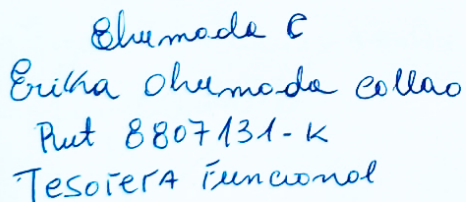 Ehumada C
Erika Ohumada Collao
Rut 8807131-K
Tesorera Funcional